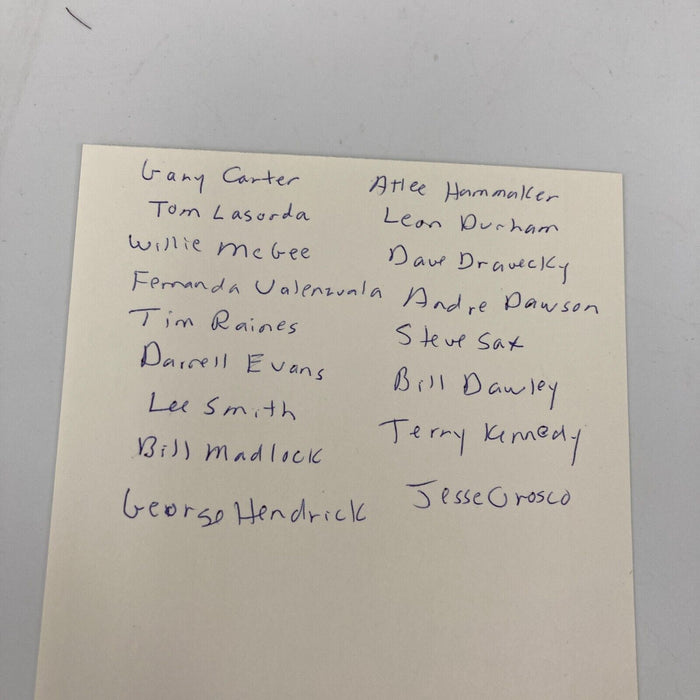 Gary Carter
Tom Lasorda
Willie McGee
Fernanda Valenzuala
Tim Raines
Darrell Evans
Lee Smith
Bill Madlock
George Hendrick
Atlee Hammaker
Leon Durham
Dave Dravecky
Andre Dawson
Steve Sax
Bill Dawley
Terry Kennedy
Jesse Orosco